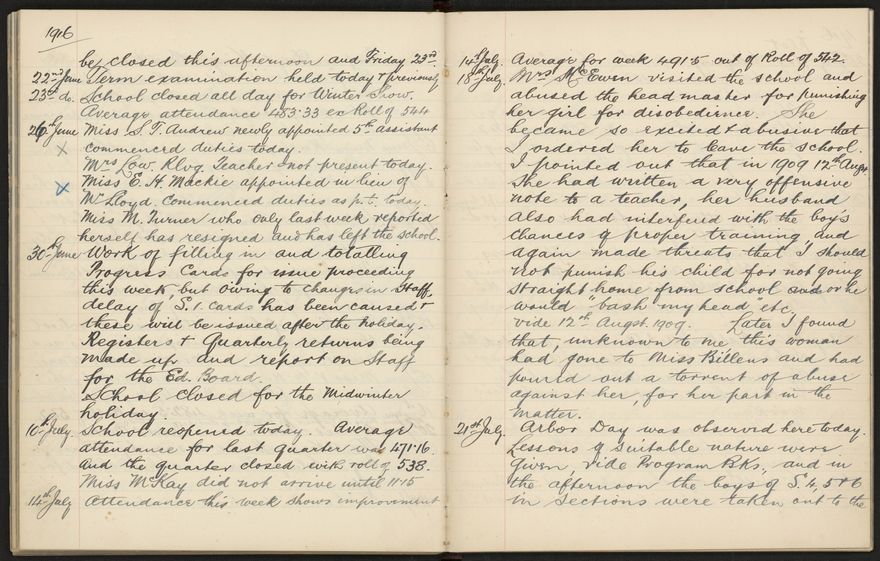 1916
be closed this afternoon and Friday 23rd.
22nd June Term examination held today & previously
23rd do. School closed all day for Winter Show.
Average attendance 483.33 ex Roll of 544
26th June Miss S. T. Andrew newly appointed 5th assistant
x commenced duties today.
Mrs Low, Rlvg. Teacher not present today.
x Miss E. H. Mackie appointed in lieu of
Mr Lloyd. Commenced duties as p.t. today.
Miss M. Turner who only last week reported
herself has resigned and has left the school.
30th June Work of filling in and totalling
Progress Cards for issue proceeding
this week but owing to changes in Staff,
delay of S.1. Cards has been caused &
these will be issued after the holiday.
Registers & Quarterly returns being
made up and report on Staff
for the Ed. Board.
School closed for the Midwinter
holiday.
10th July. School reopened today. Average
attendance for last quarter was 471.16
and the quarter closed with roll of 538.
Miss McKay did not arrive until 11.15
14th July Attendance this week shows improvement
14th July. Average for week 491.5 out of Roll of 542.
18th July. Mrs McEwen visited the school and
abused the headmaster for punishing
her girl for disobedience. She
became so excited & abusive that
I ordered her to leave the school.
I pointed out that in 1909 12th Augst
she had written a very offensive
note to a teacher, her husband
also had interfered with the boy's
chances of proper training and
again made threats that I should
not punish his child for not going
straight home from school and or he
would "bash my head" etc,
vide 12th Augst. 1909. Later I found
that, unknown to me this woman
had gone to Miss Billens and had
poured out a torrent of abuse
against her, for her part in the
matter.
21st July. Arbor Day was observed here today.
Lessons of suitable nature were
given, vide Program Bks., and in
the afternoon the boys of S.4, 5 & 6
in sections were taken out to the